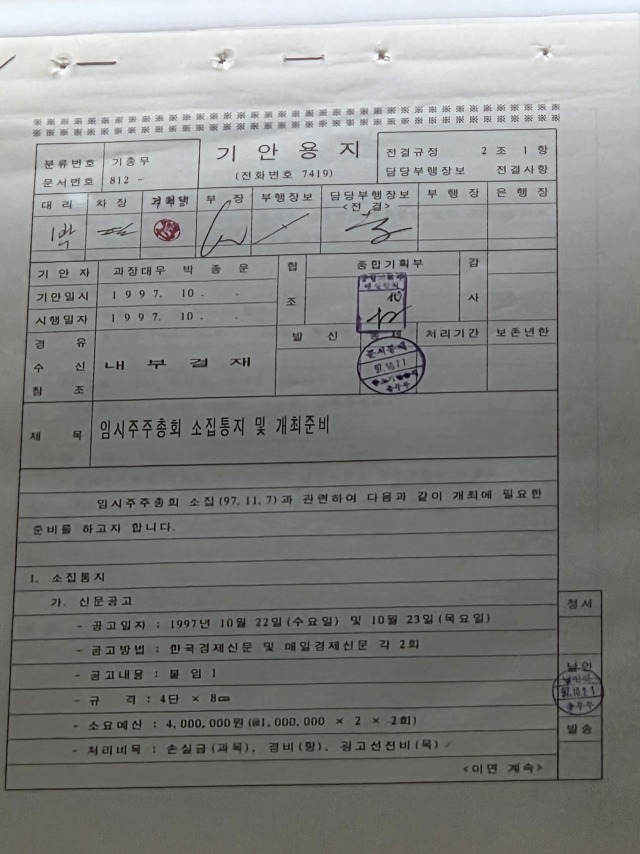 ※※※※※※※※※※※※※※※※※※※※※※※※※※※※※※※※※※※※※※※※※※
분류번호 기총무
문서번호 812 -
기 안 용 지
(전화번호 7419)
전결규정 2 조 1 항
담당부행장보 전결사항
대 리 차 장 부 장 부행장보 담당부행장보 부 행 장 은 행 장
<전 결>
기 안 자 과장대우 박 종 운
기안일시 1 9 9 7. 10 . .
시행일자 1 9 9 7. 10 . .
협 조 종합기획부 감 사
경 유
수 신
참 조
내 부 결 재
발 신 통 제 처리기간 보존년한
97.10.21
제 목 임시주주총회 소집통지 및 개최준비
임시주주총회 소집(97.11.7)과 관련하여 다음과 같이 개최에 필요한
준비를 하고자 합니다.
1. 소집통지
가. 신문공고
- 공고일자 : 1997년 10월 22일(수요일) 및 10월 23일(목요일)
- 공고방법 : 한국경제신문 및 매일경제신문 각 2회
- 공고내용 : 붙 임 1
- 규 격 : 4단 × 8㎝
- 소요예산 : 4,000,000원(@1,000,000 × 2 × 2회)
- 처리비목 : 손실금(과목), 경비(항), 광고선전비(목)
<이면 계속>
정서
날인
97.10.21
발송